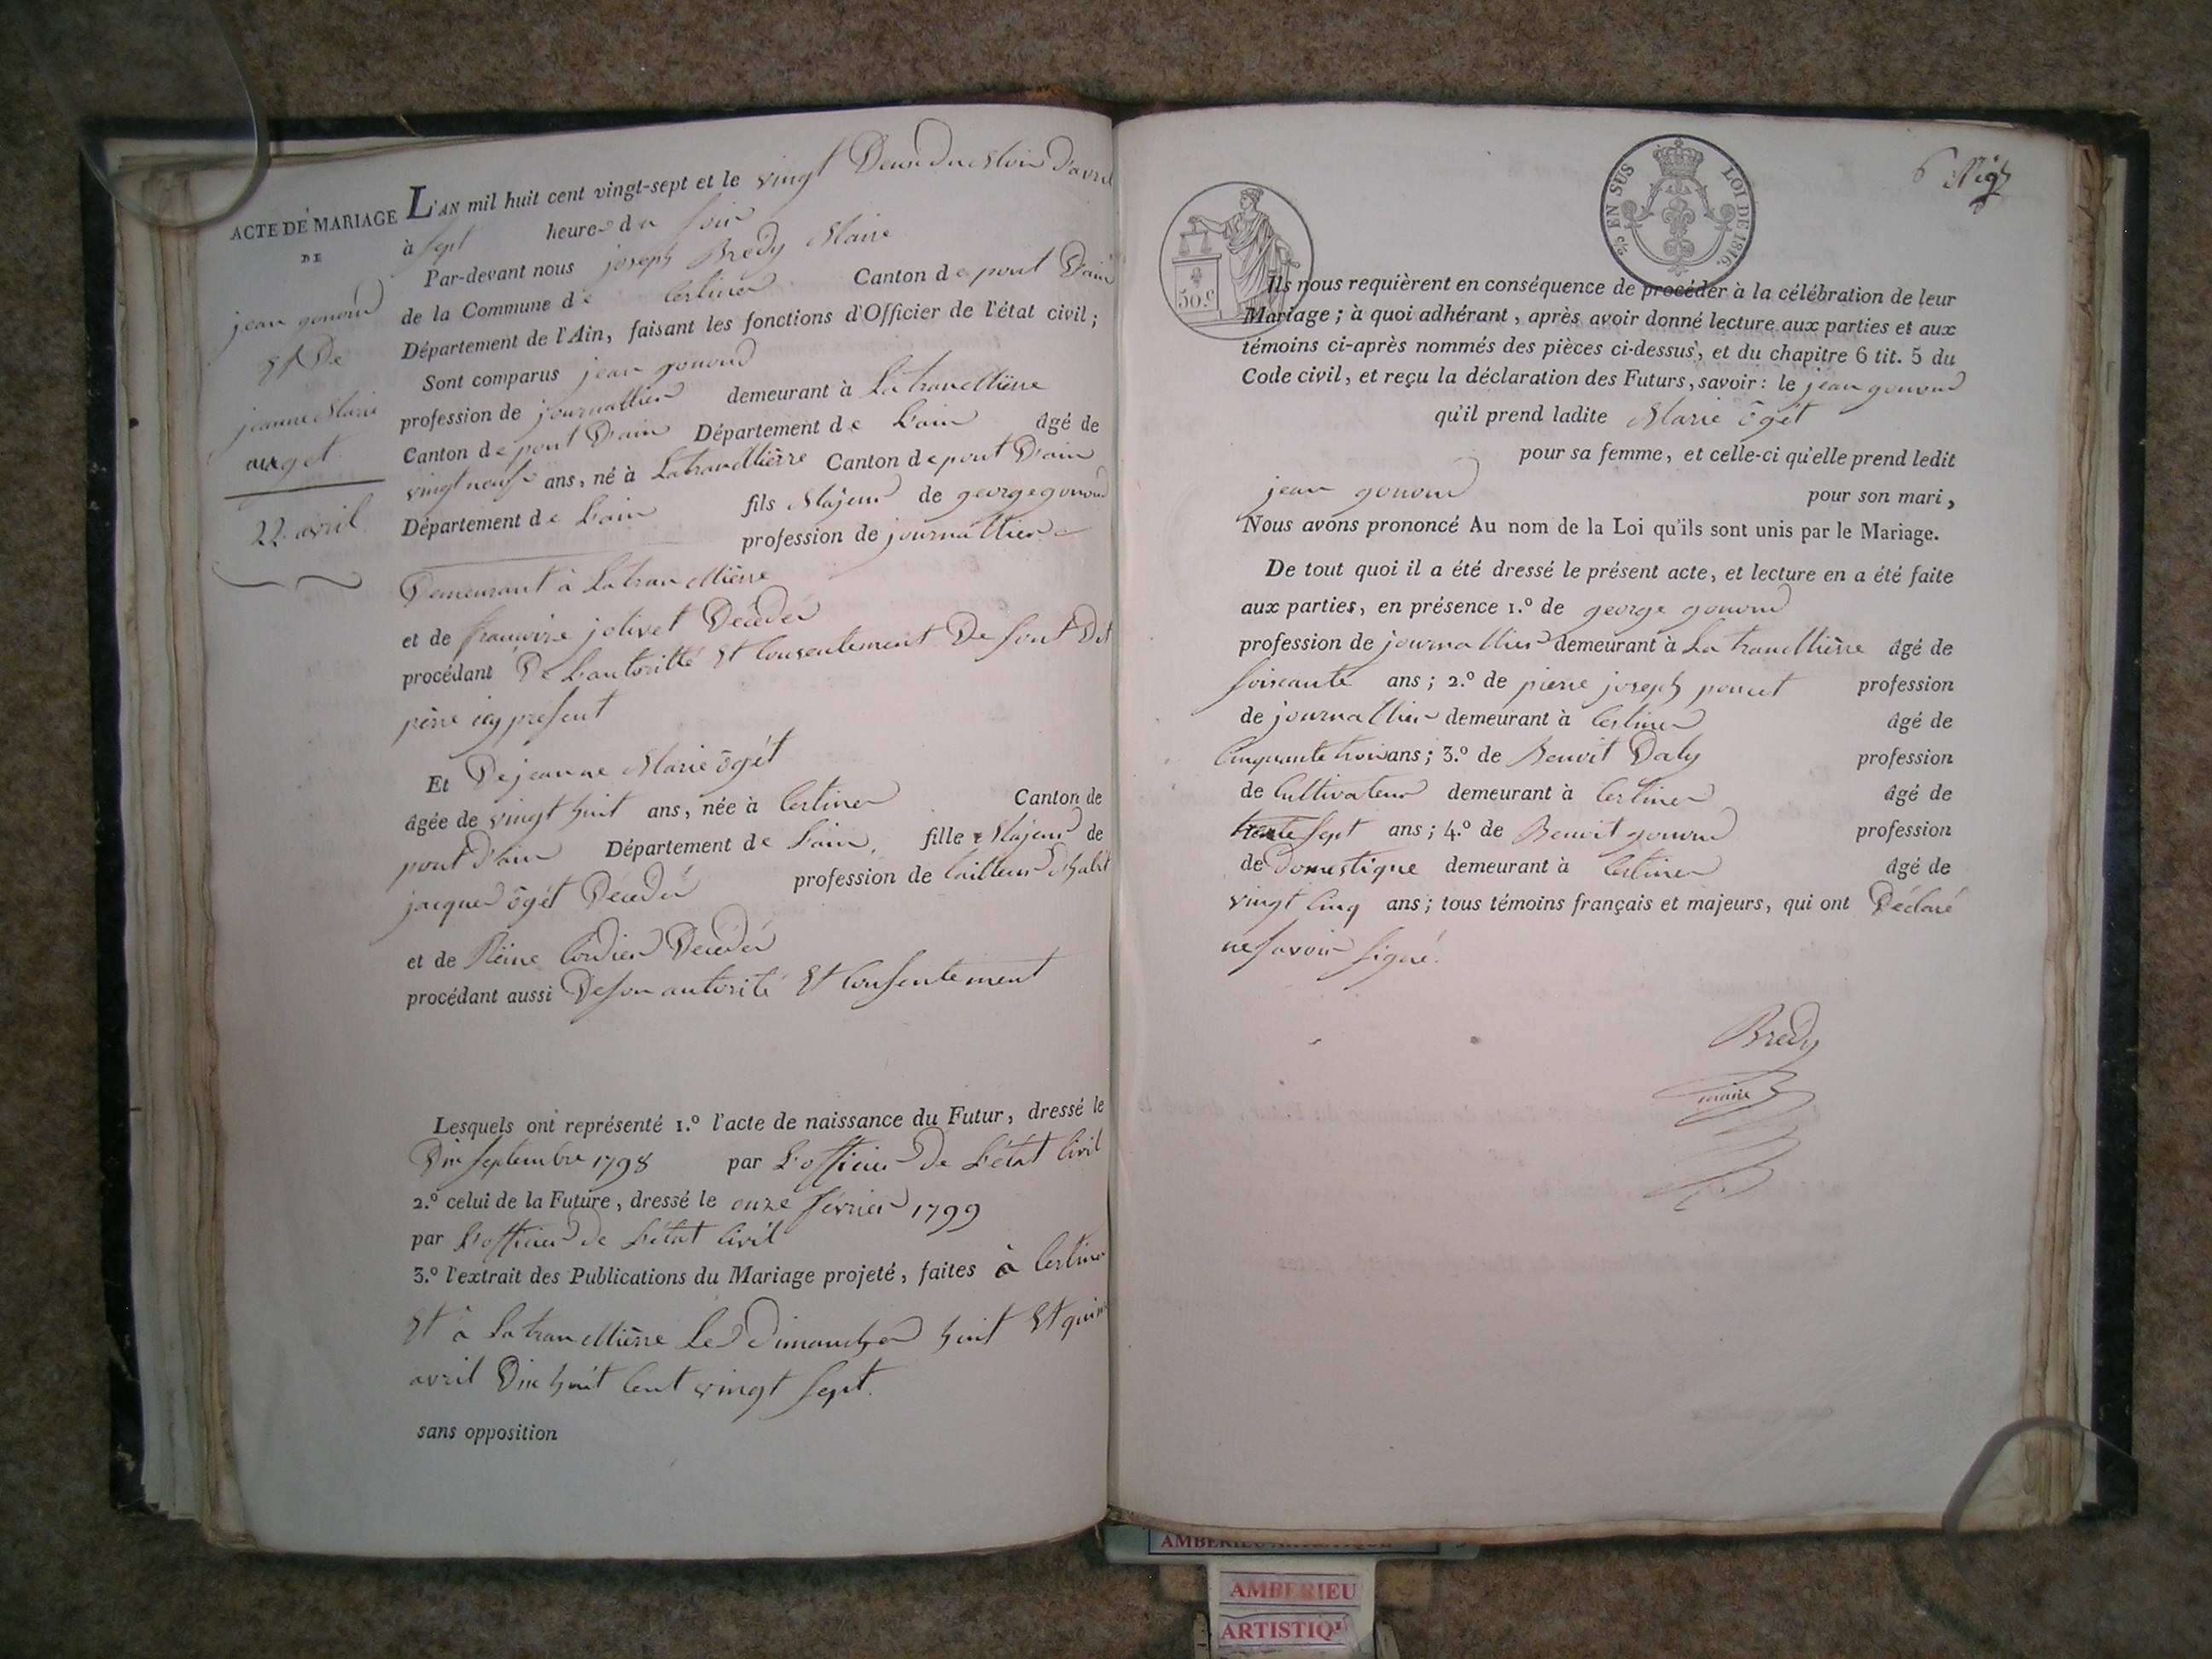 ACTE DE MARIAGE
DE
jean gonond
Et De
jeanne Marie
auget
22 avril
L'AN mil huit cent vingt-sept et le vingt Deux du Mois D'avril
à sept heures du soir
Par-devant nous joseph Bredy Maire
de la Commune de Certines Canton de pont D'ain
Département de l'Ain, faisant les fonctions d'Officier de l'état civil;
Sont comparus jean gonond
profession de journallier demeurant à La tranclliere
Canton de pont D'ain Département de L'ain âgé de
vingt neuf ans, né à La tranclliere Canton de pont D'ain
Département de L'ain fils Majeur de george gonond
profession de journallier
Demeurant à La tranclliere
et de françoise jolivet Décédés
procédant De L'autoritté Et Consentement De sont Dit
père icy present
Et De jeanne Marie ôgét
âgée de vingt huit ans, née à Certines Canton de
pont D'ain Département de L'ain, fille Majeur de
jacques ôgét Décédé profession de tailleur D'habit
et de Reine Cordier Décédés
procédant aussi De son autorité Et Consentement
Lesquels ont représenté 1.º l'acte de naissance du Futur, dressé le
Dix septembre 1798 par L'officier De L'état Civil
2.º celui de la Future, dressé le onze février 1799
par L'officier de L'état Civil
3.º l'extrait des Publications du Mariage projeté, faites à Certines
Et à La tranclliere Les Dimanches huit Et quinze
avril Dix huit Cent vingt sept.
sans opposition
50.c
EN SUS
LOI DE 1816.
6
Ils nous requièrent en conséquence de procéder à la célébration de leur
Mariage; à quoi adhérant, après avoir donné lecture aux parties et aux
témoins ci-après nommés des pièces ci-dessus, et du chapitre 6 tit. 5 du
Code civil, et reçu la déclaration des Futurs, savoir: le jean gonond
qu'il prend ladite Marie ôgét
pour sa femme, et celle-ci qu'elle prend ledit
jean gonond pour son mari,
Nous avons prononcé Au nom de la Loi qu'ils sont unis par le Mariage.
De tout quoi il a été dressé le présent acte, et lecture en a été faite
aux parties, en présence 1.º de george gonond
profession de journallier demeurant à La tranclliere âgé de
soixante ans; 2.º de pierre joseph poncet profession
de journallier demeurant à Certines âgé de
Cinquante trois ans; 3.º de Benoit Daly profession
de Cultivateur demeurant à Certines âgé de
trente sept ans; 4.º de Benoit gonond profession
de Domestique demeurant à Certines âgé de
vingt Cinq ans; tous témoins français et majeurs, qui ont Déclaré
ne savoir signé.
Bredy
maire
AMBERIEU ARTISTIQUE
AMBERIEU
ARTISTIQ